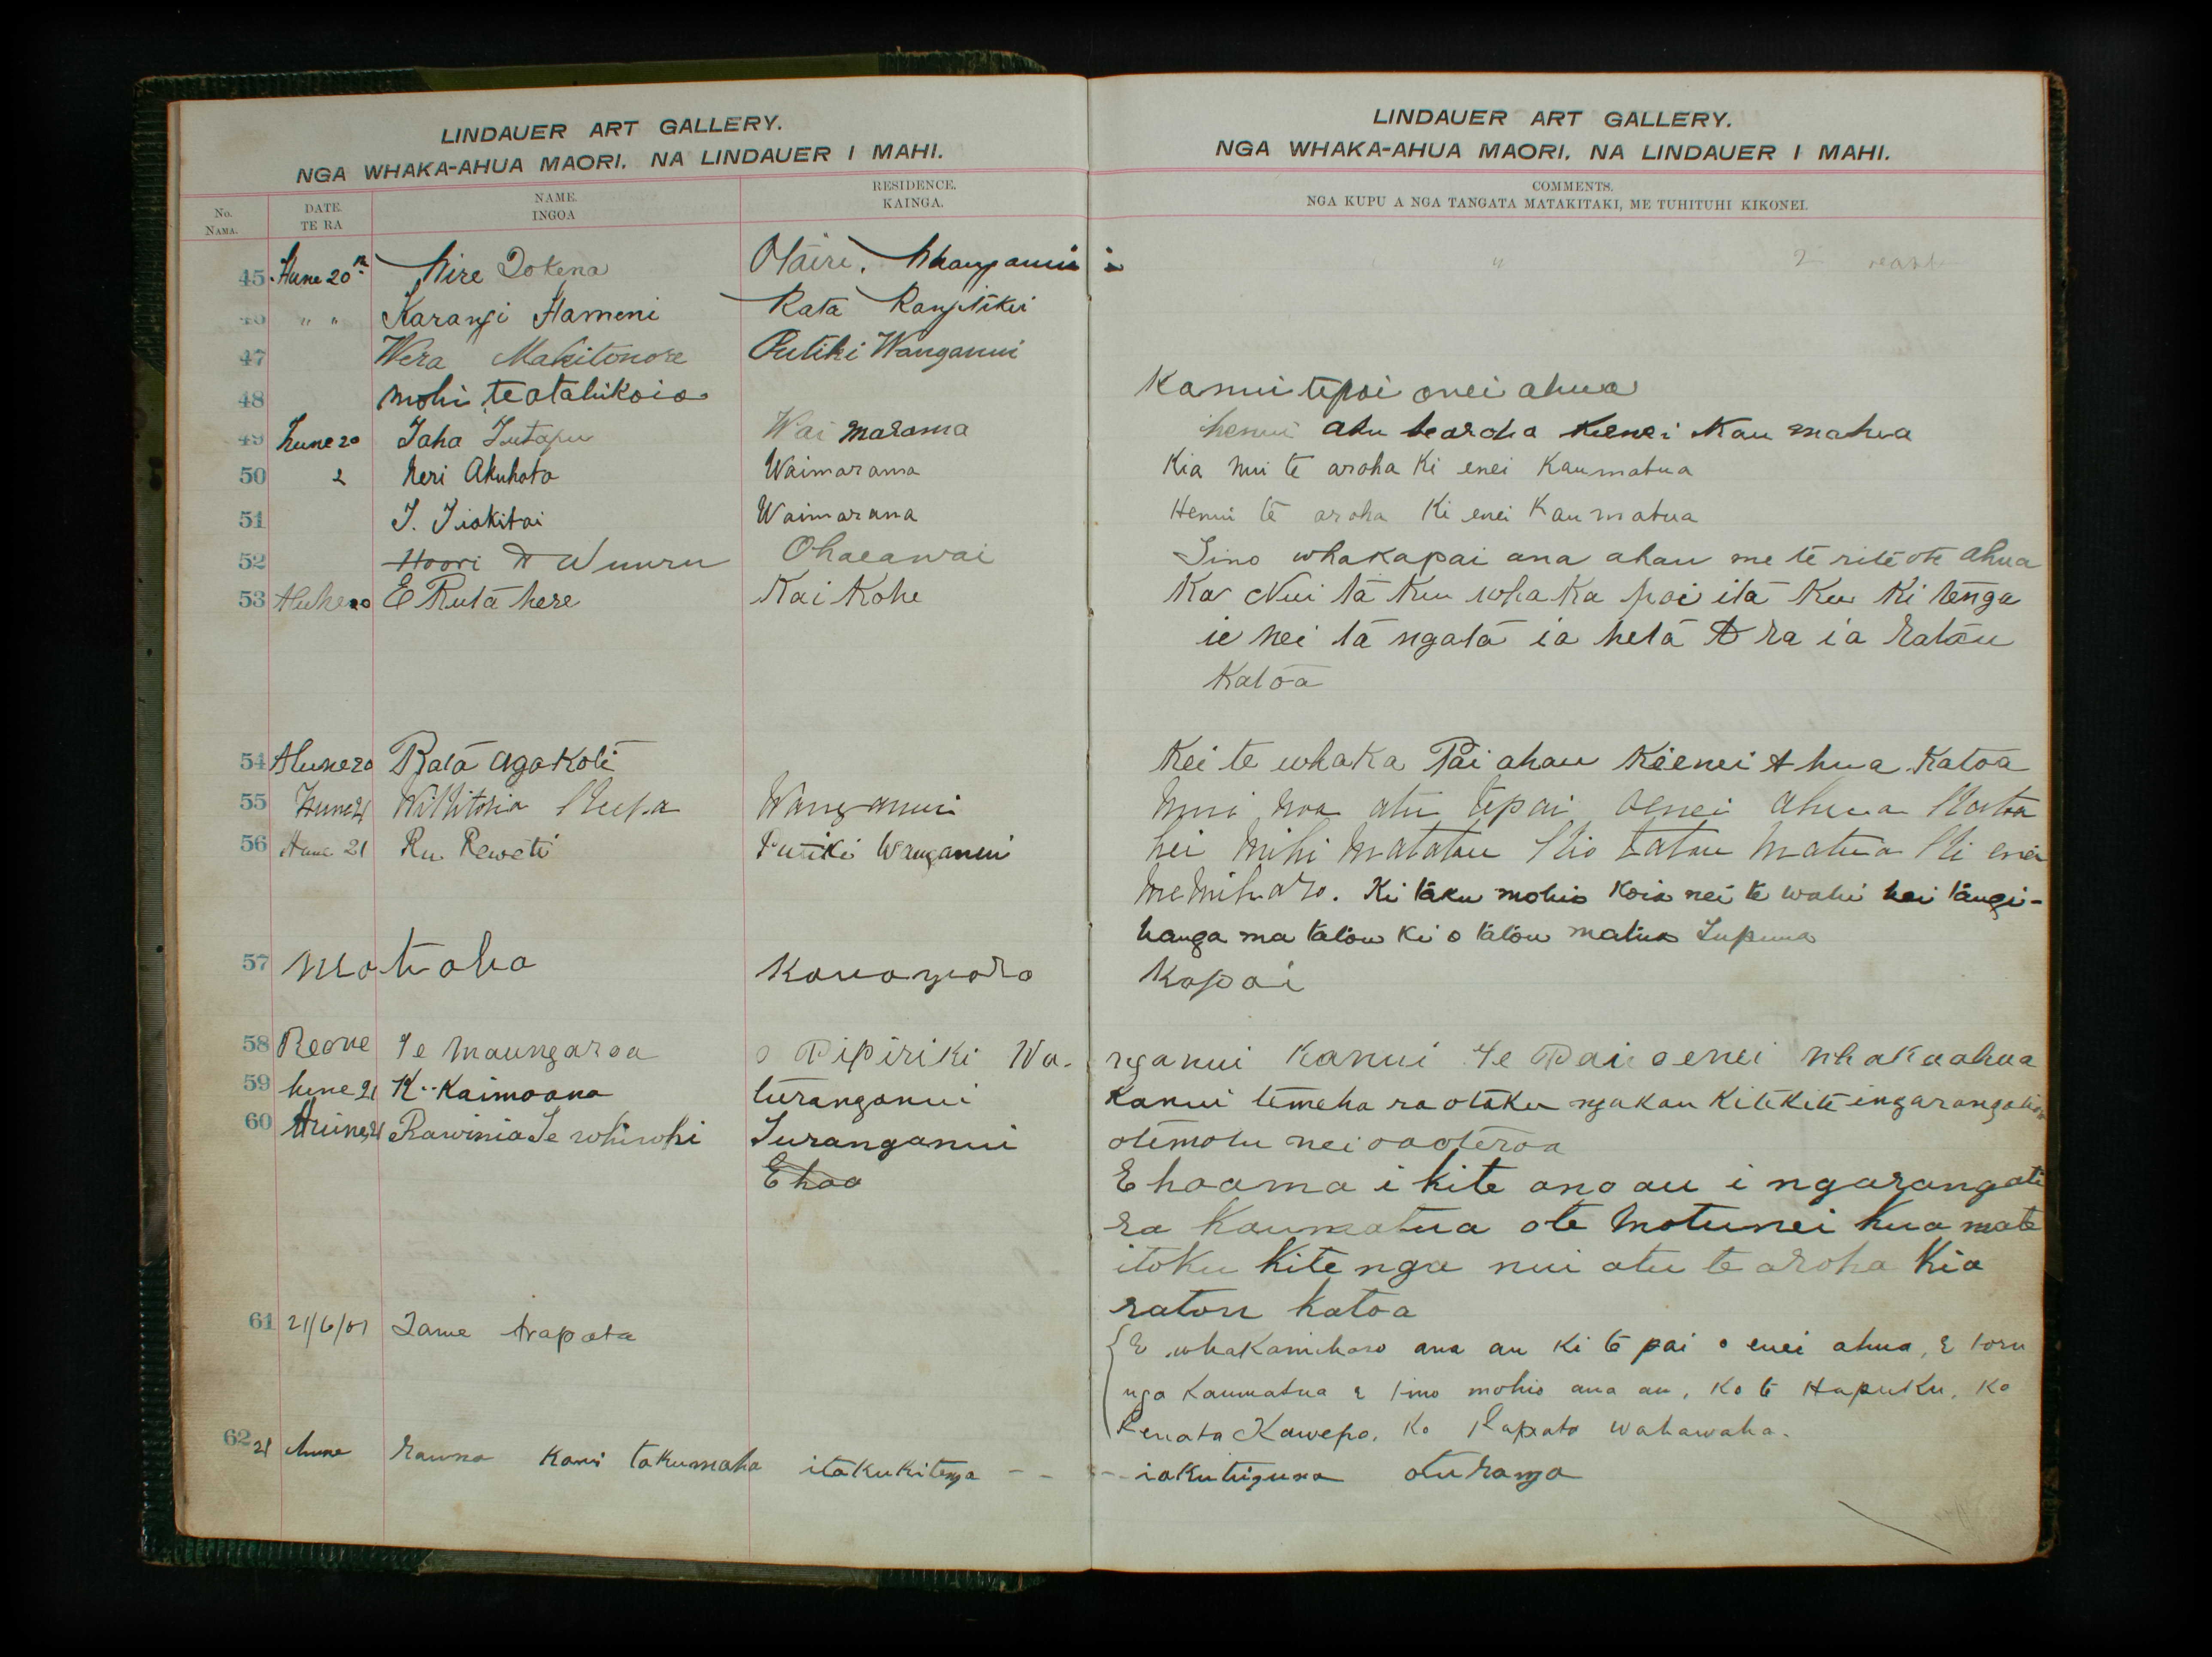 LINDAUER ART GALLERY.
NGA WHAKA-AHUA MAORI. NA LINDAUER I MAHI.
No. NAMA.
DATE. TE RA
NAME. INGOA
RESIDENCE. KAINGA.
45 Hune 20th Hire Tokena Otairi, Whanganui
46 " " Karangi Hameni Rata Rangitikei
47 Wera Makitonore Putiki Wanganui
48 Mohi te atahikoia
49 Hune 20 Taha Tutapu Wai marama
50 2 Neri Akuhata Waimarama
51 T. Tiakitai Waimarana
52 Hoori Ohaeawai
53 Hune 20 E Ruta here Kai Kohe
54 Hune 20 Rata
55 Hune 21 Wikitoria Keepa Wanganui
56 Hune 21 Ru Reweti Putiki Wanganui
57
58 Te Maungaroa o Pipiriki Wa-
59 hune 21 K. Kaimoana turanganui
60 Huine 21 Rawinia Te whiwhi Turanganui
Ehoa
61 21/6/01 Tame Arapata
62 21 hune Rauna Kanui takumaha itakukitenga - -
LINDAUER ART GALLERY.
NGA WHAKA-AHUA MAORI. NA LINDAUER I MAHI.
COMMENTS.
NGA KUPU A NGA TANGATA MATAKITAKI, ME TUHITUHI KIKONEI.
Kanui tepai onei ahua
henui aku te aroha kienei Kau matua
Kia nui te aroha Ki enei Kaumatua
Henui te aroha Ki enei Kaumatua
Tino whakapai ana ahau me te rite ote ahua
Ka Nui ta Kuu whaka pai ita Ku Ki tenga
ie nei ta ngata ia heta A ra ia Ratou
Katoa
Kei te whaka Pai ahau Kienei Ahua Katoa
Nui noa atu tepai oenei ahua Katoa
hei mihi matatou Kio tatou matua Ki enei
memiharo. Ki taku mohio Koia nei te wahi hei tangi-
hanga ma tatou Ki o tatou matua Tupuna
Kapai
nganui Kanui te Pai o enei whakaahua
Kanui temeha ra otaku ngakau Kitekite ingarangatira
otemotu nei oaoteroa
E hoama i kite ano au i ngarangati
ra Kaumatua ote Motunei kua mate
itoku Kite nga nui atu te aroha Kia
ratou katoa
E whakamiharo ana au ki te pai o enei ahua, e toru
nga Kaumatua e tino mohio ana au, Ko te Hapuku, Ko
Renata Kawepo, Ko Rapata Wahawaha.
- - iakutiguna oturanga